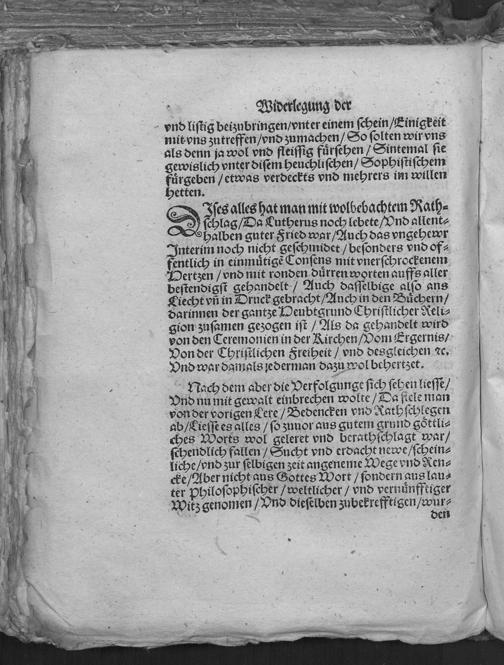 Widerlegung der
vnd listig beizubringen/vnter einem schein/Einigkeit
mit vns zutreffen/vnd zumachen/ So solten wir vns
als denn ja wol vnd fleissig fürsehen/ Sintemal sie
gewislich vnter disem heuchlischen/ Sophistischem
fürgeben/ etwas verdeckts vnd mehrers im willen
hetten.
DIses alles hat man mit wolbebachtem Rath-
schlag/ Da Lutherus noch lebete/ Vnd allent-
halben guter Fried war/ Auch das vngehewr
Interim noch nicht geschmidet/ besonders vnd of-
fentlich in einmütigē Consens mit vnerschrockenem
Hertzen/ vnd mit ronden dürren worten auffs aller
bestendigst gehandelt/ Auch dasselbige also ans
Liecht vñ in Druck gebracht/ Auch in den Büchern/
darinnen der gantze Heubtgrund Christlicher Reli-
gion zusamen gezogen ist/ Als da gehandelt wird
von den Ceremonien in der Kirchen/ Vom Ergernis/
Von der Christlichen Freiheit/ vnd desgleichen ꝛc.
Vnd war damals jederman dazu wol behertzet.
Nach dem aber die Verfolgunge sich sehen liesse/
Vnd nu mit gewalt einbrechen wolte/ Da fiele man
von der vorigen Lere/ Bedencken vnd Rathschlegen
ab/ Liesse es alles/ so zuuor aus gutem grund göttli-
ches Worts wol geleret vnd berathschlagt war/
schendlich fallen/ Sucht vnd erdacht newe/ schein-
liche/ vnd zur selbigen zeit angeneme Wege vnd Ren-
cke/ Aber nicht aus Gottes Wort/ sondern aus lau-
ter Philosophischer/ weltlicher/ vnd vernünfftiger
Witz genomen/ Vnd dieselben zubekrefftigen/ wur-
den